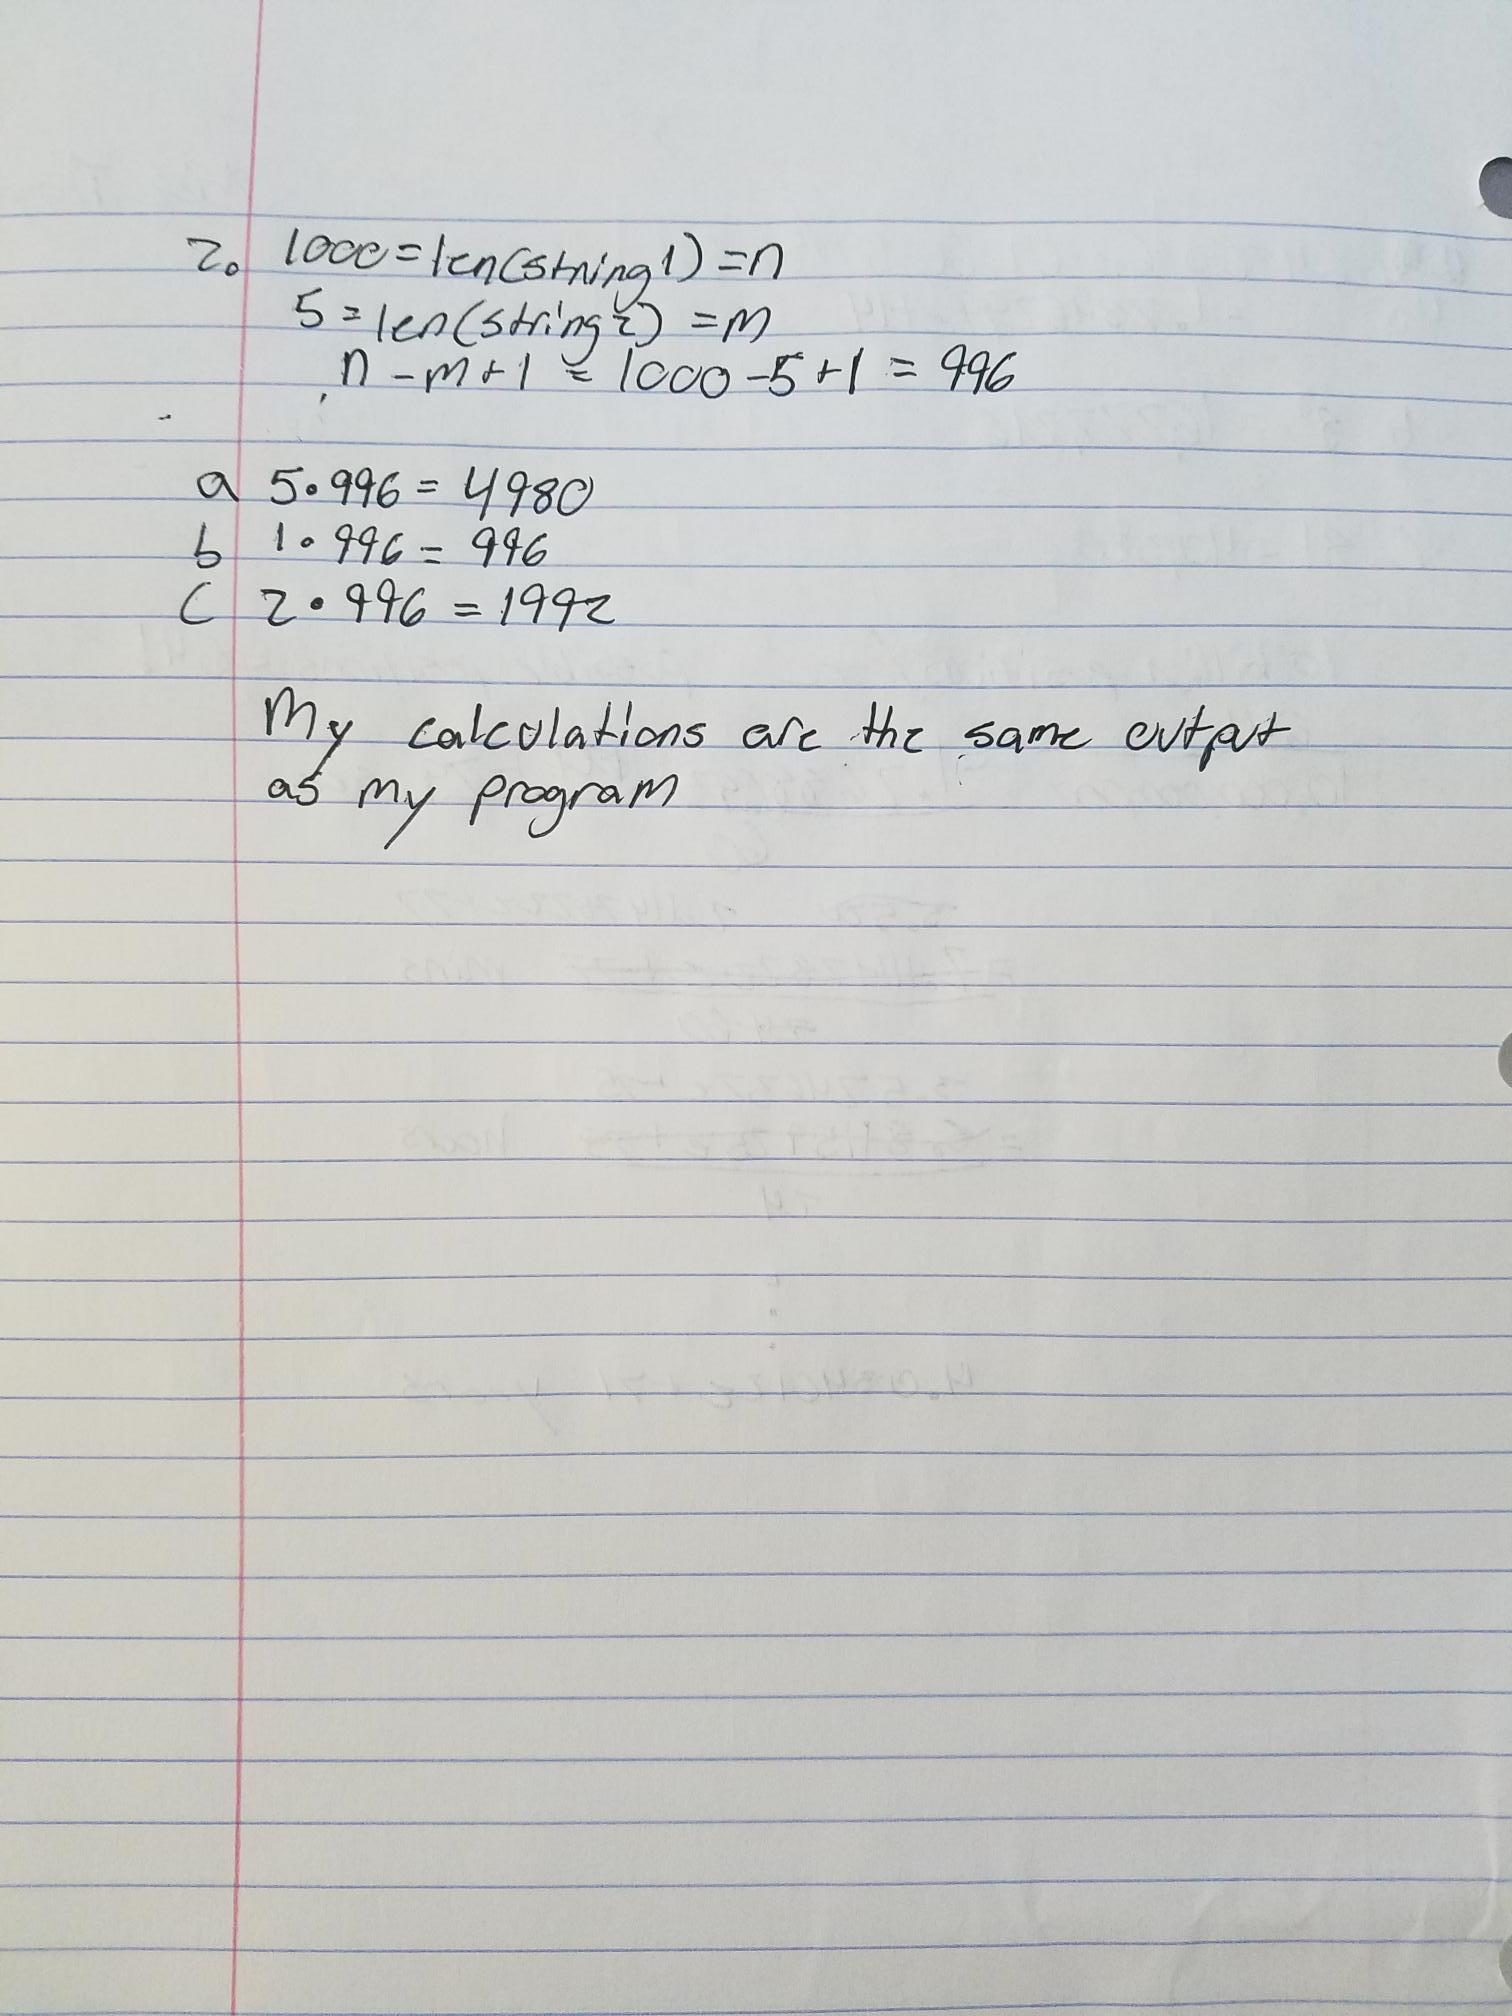 2. 1000 = len(string1) = n
5 = len(string2) = m
n - m + 1 = 1000 - 5 + 1 = 996
a 5 • 996 = 4980
b 1 • 996 = 996
c 2 • 996 = 1992
My calculations are the same output
as my program